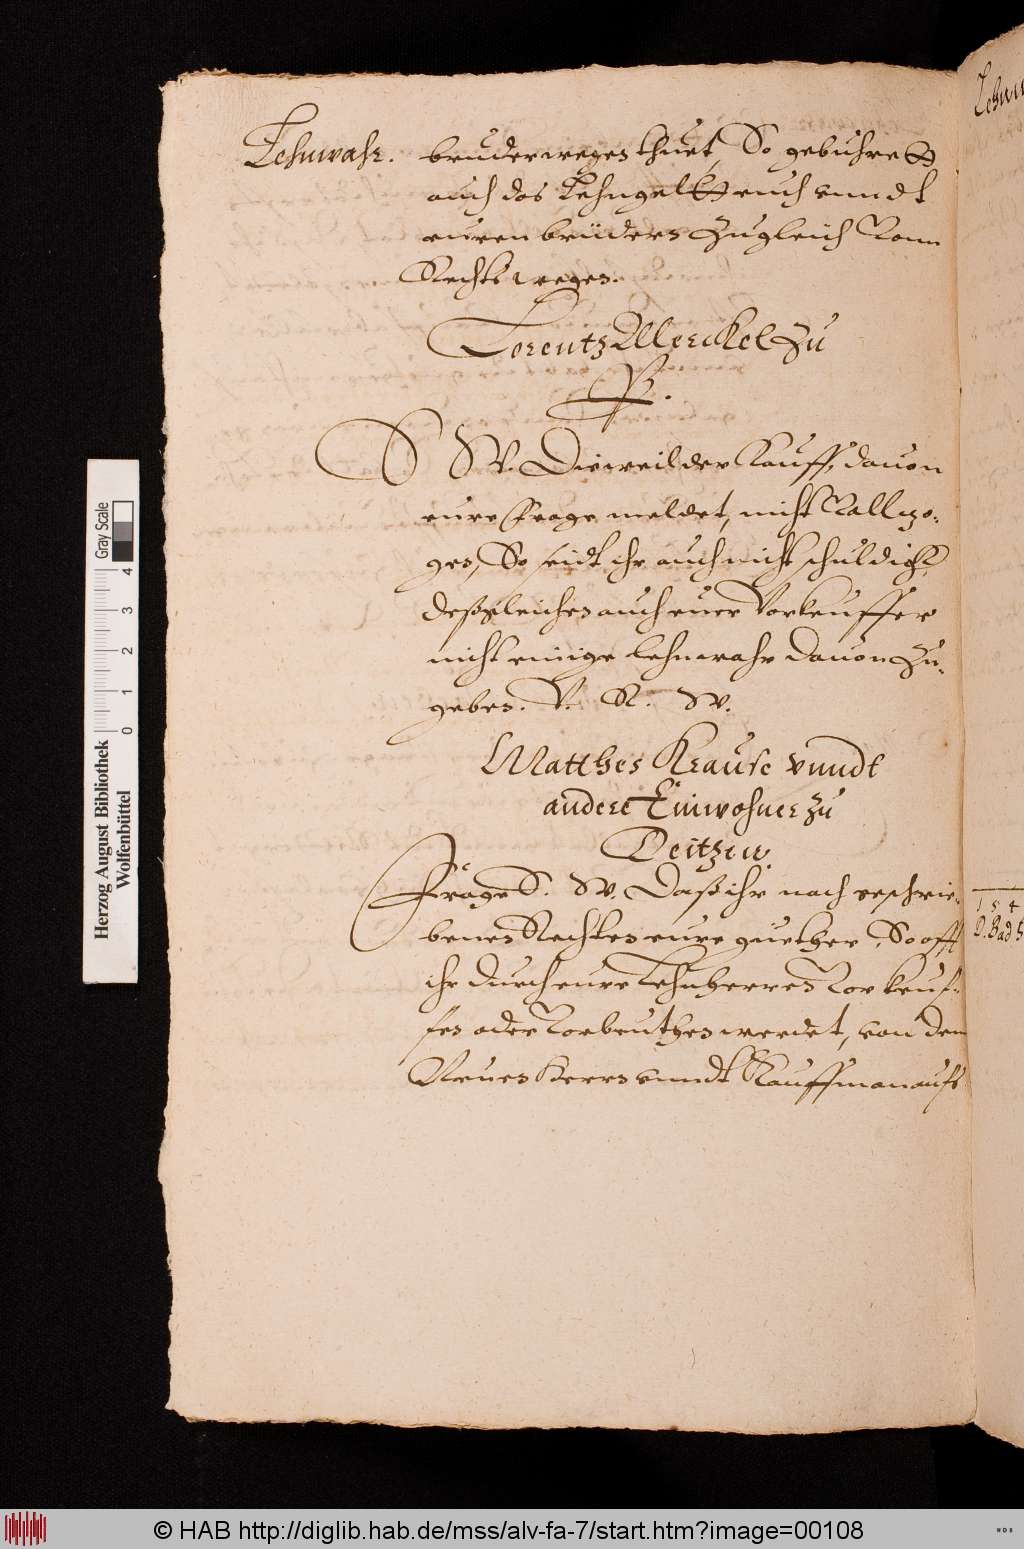 Lehnwahr.
bruder wegen thuet, So gebuhrett
auch das Lehngeltt euch vnndt
euren brüdern zugleich Vonn
Rechts wegen.
Lorentz Merckel zu
P.
S W. Dieweil der Kauff, dauon
eure Frage meldet, nicht Vollzo-
gen, So seidt ihr auch nicht schuldigk,
deßgleichen auch euer Vorkeuffer
nicht einige lehnwahr dauon zu-
geben. V. R. W.
Matthes Krause vnndt
andere Einwohner zu
Deitzen.
Frage S. W. Daß ihr nach beschrie-
benen Rechten eure guether, So offt
ihr durch eure Lehnherren Vorkeuf-
fen oder Vorbeuthen werdet, von dem
Neuen Herrn vnndt Kauffman aufs
Lehnw
1 5 4
D. Bad
Herzog August Bibliothek
Wolfenbüttel
0 1 2 3 4
Gray Scale
© HAB http://diglib.hab.de/mss/alv-fa-7/start.htm?image=00108